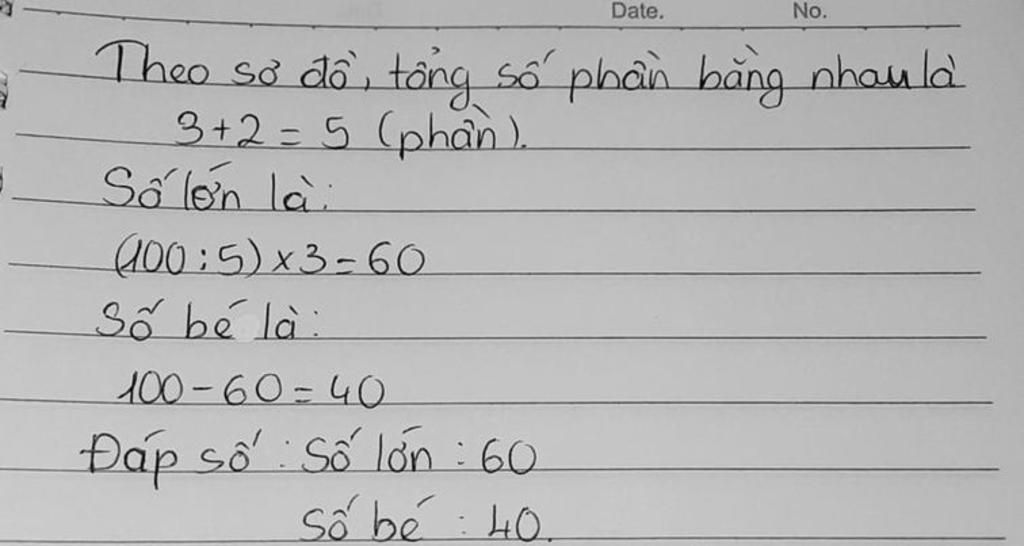 Date. No.
Theo sơ đồ, tổng số phần bằng nhau là
3+2=5 (phần).
Số lớn là:
(100:5)×3=60
Số bé là:
100-60=40
Đáp số: Số lớn: 60
Số bé: 40.